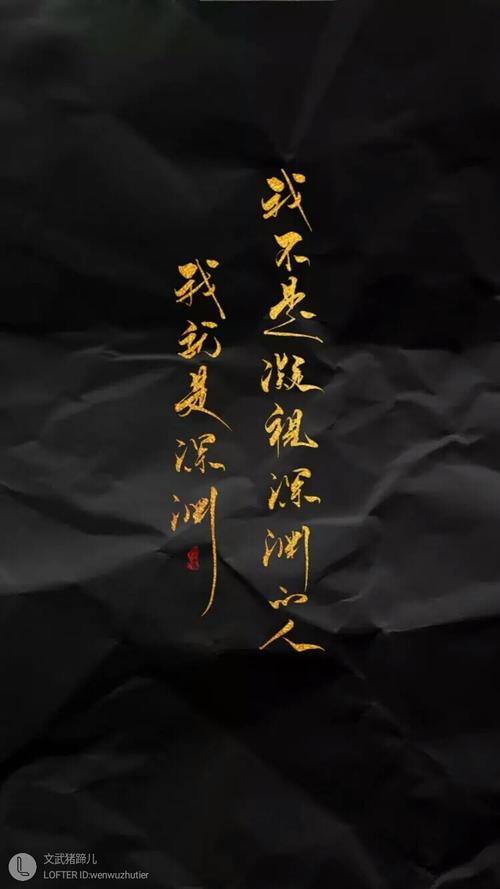 我不是凝视深渊的人
我就是深渊
文武猪蹄儿
LOFTER ID:wenwuzhutier